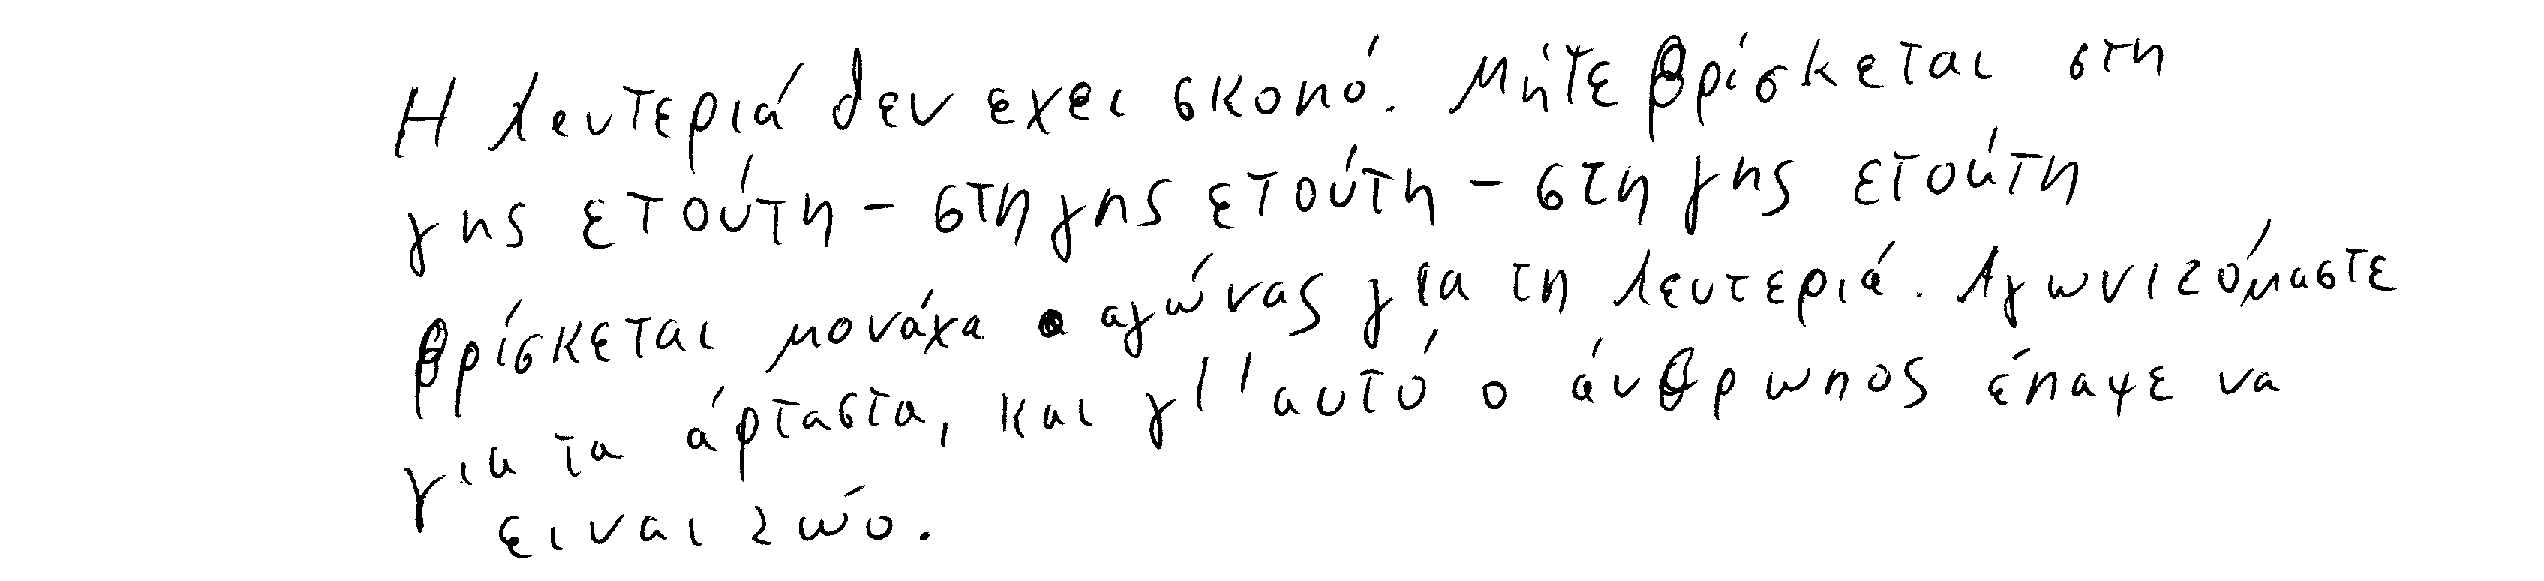 Η λευτεριά δεν εχει σκοπό. Μήτε βρίσκεται στη
γης ετούτη - στη γης ετούτη - στη γης ετούτη
βρίσκεται μονάχα ο αγώνας για τη λευτεριά. Αγωνιζόμαστε
για τα άρταστα, και γι' αυτό ο άνθρωπος έπαψε να
ειναι ζώο.